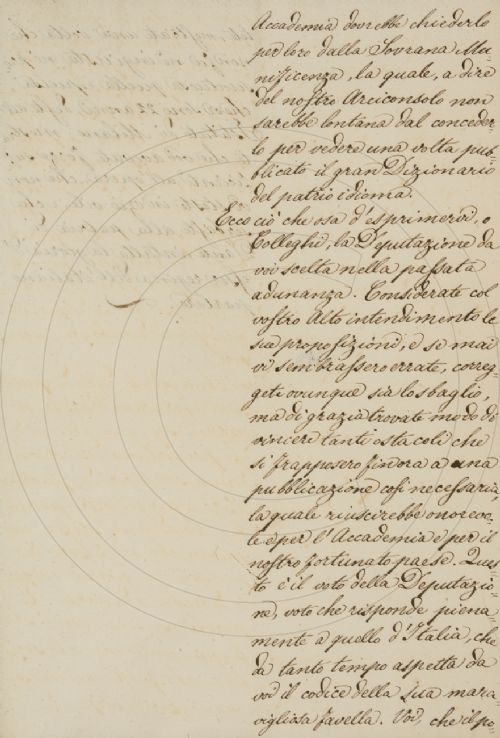 Accademia dovrebbe chiederlo
per loro dalla Sovrana Mu-
nificenza, la quale, a dire
del nostro Arciconsolo non
sarebbe lontana dal conceder
lo per vedere una volta pub-
blicato il gran Dizionario
del patrio idioma.
Ecco ciò che osa d'esprimervi, o
Colleghi, la Deputazione da
voi scelta nella passata
adunanza. Considerate col
vostro Alto intendimento le
sue proposizioni, e se mai
vi sembrassero errate, correg-
gete ovunque sia lo sbaglio,
ma di grazia trovate modo di
vincere tanti ostacoli che
si frapposero finora a una
pubblicazione così necessaria,
la quale riuscirebbe onorevo-
le e per l'Accademia e per il
nostro fortunato paese. Ques-
to è il voto della Deputazio-
ne, voto che risponde piena-
mente a quello d'Italia, che
da tanto tempo aspetta da
voi il codice della sua mara-
vigliosa favella. Voi, che il po-